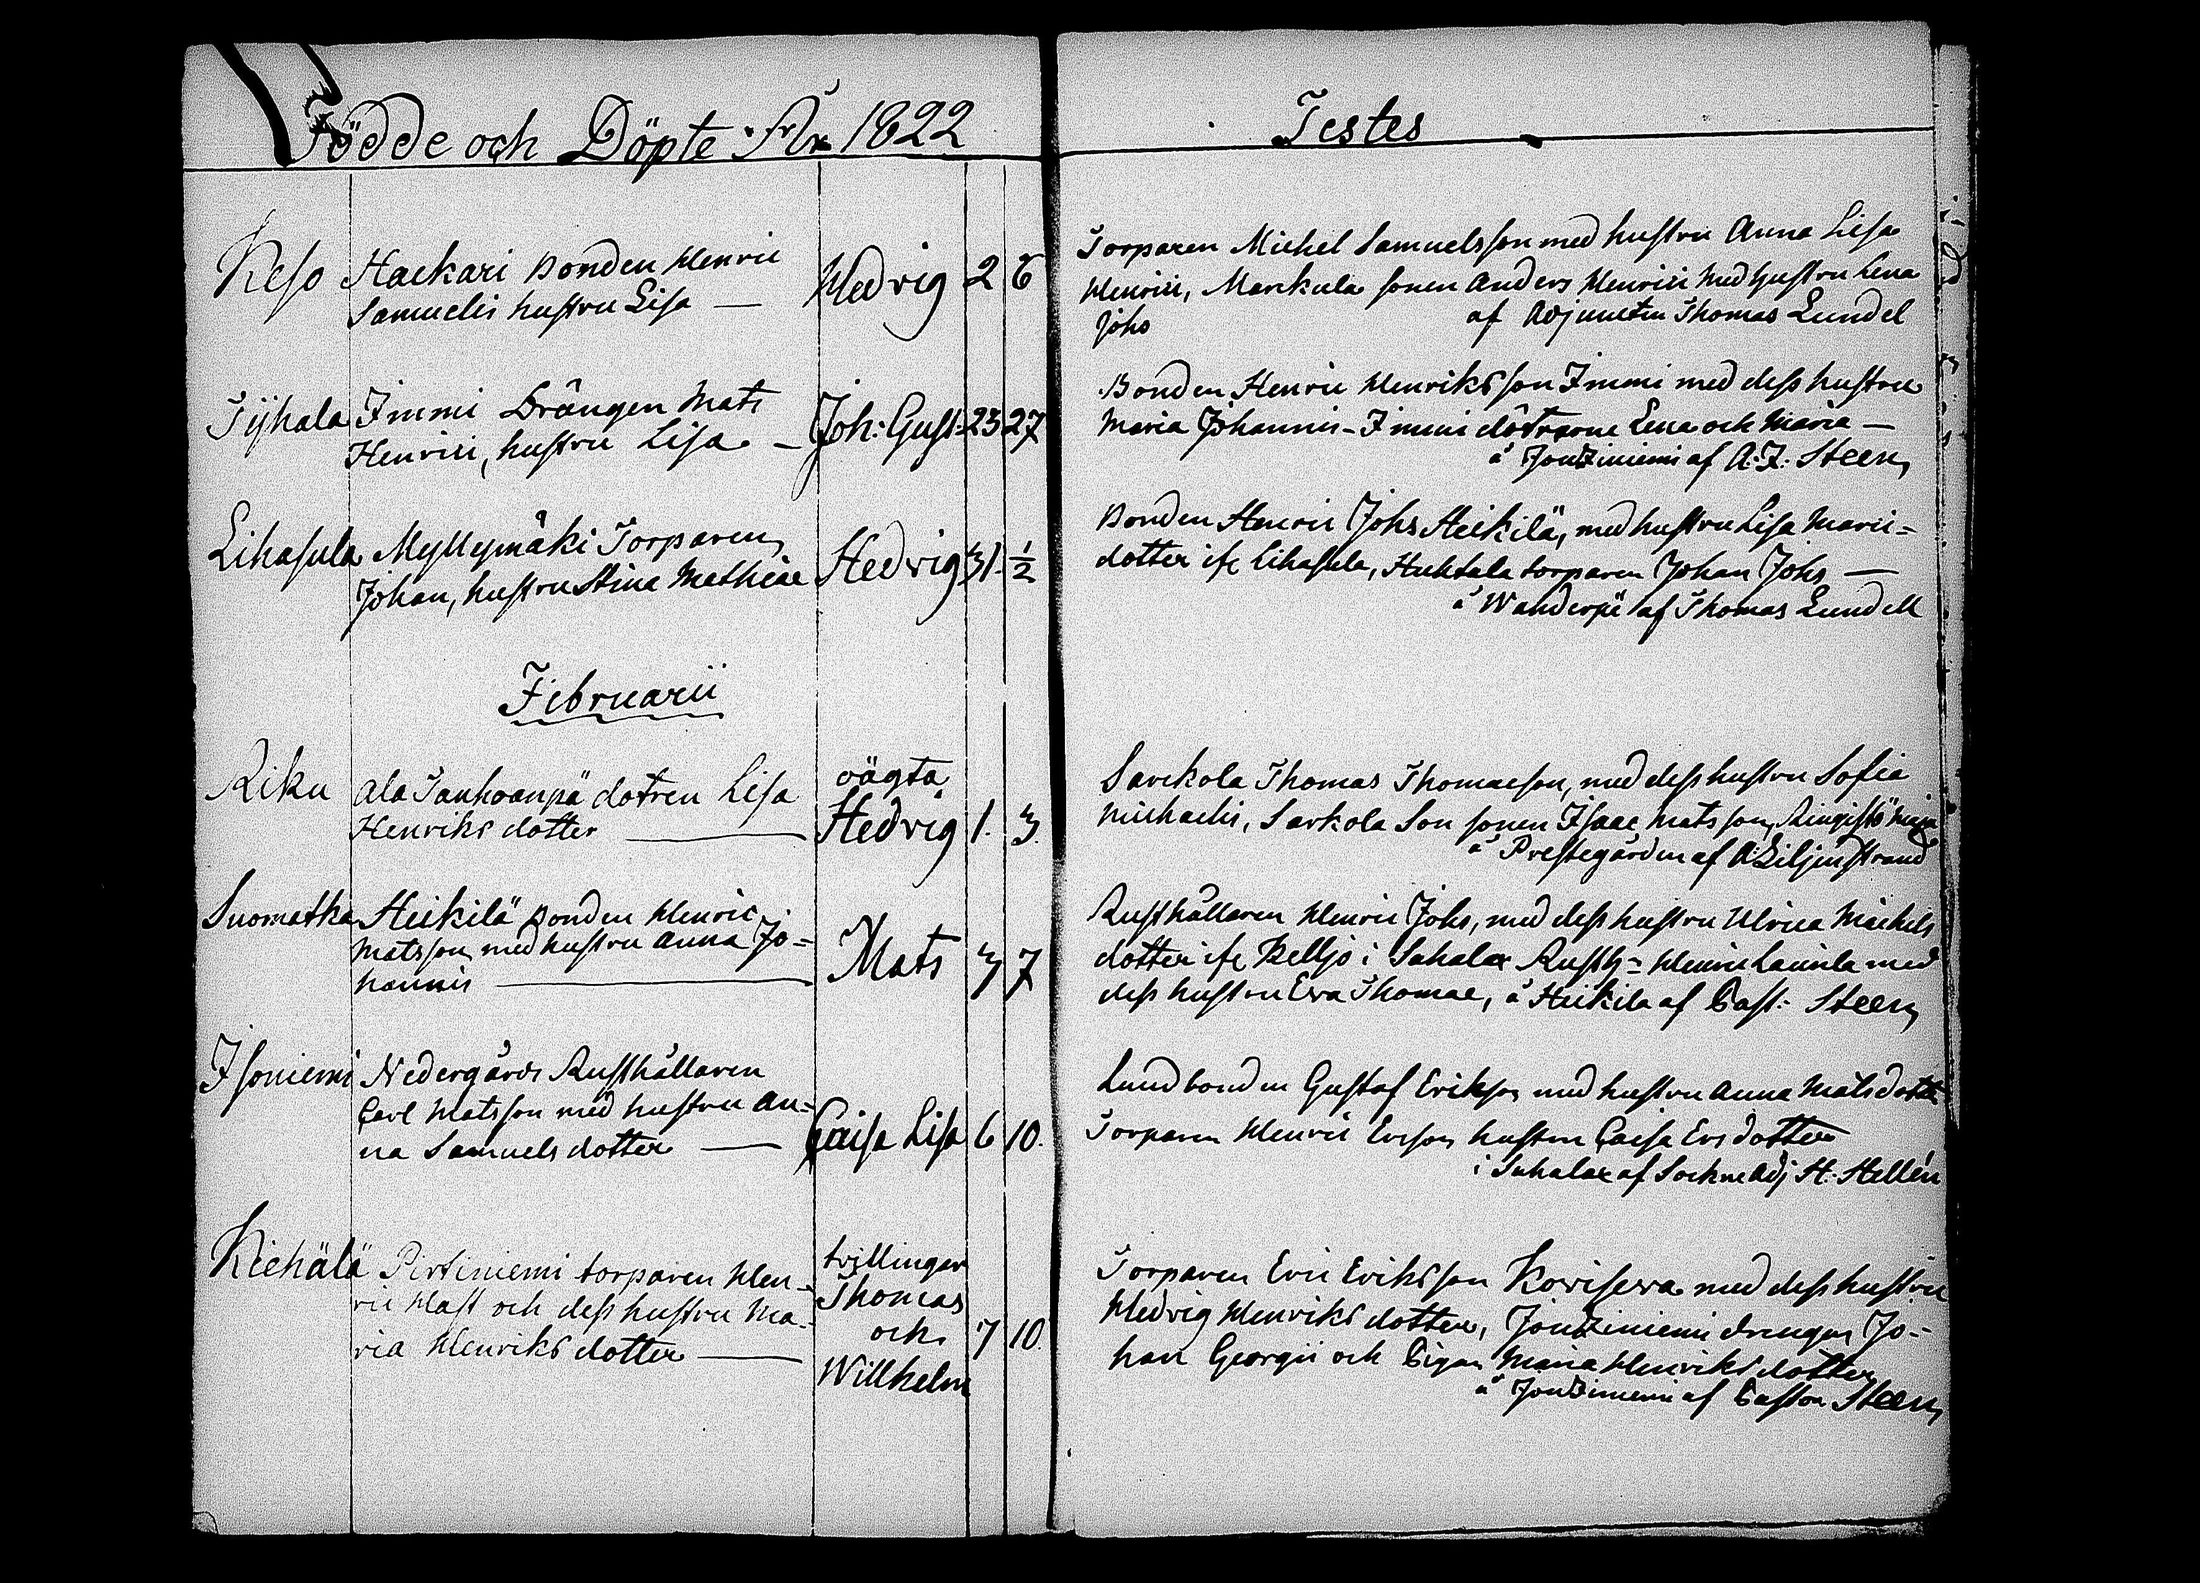 Födde och Döpte År 1822
Testes
Keso
Hackari Bonden Henric
Samuelis hustru Lisa —
Hedvig 2 6
Torparen Michel Samuelsson med hustru Anna Lisa
Henrici, Marckula sonen Anders Henrici med hustru Lena
Johs af Adjuncten Thomas Lundel
Tyhala Immi Drängen Mats
Henrici, hustru Lisa —
Joh: Gust: 23 27
Bonden Henric Henriksson Immi med dess hustru
Maria Johannis - Immi dötrarne Lena och Maria —
å Jontziniemi af A: I: Steen
Lihasula Myllymäki Torparen
Johan, hustru Stina Mathiae
Hedvig 31. 1/2
Bonden Henric Johs Heikilä, med hustru Lisa Marci=
dotter ifr Lihasula, Huhtala torparen Johan Johs —
å Wanderpä af Thomas Lundell
Februarii
Riku Ala Tanhoanpä dotren Lisa
Henriks dotter —
oägta
Hedvig 1. 3.
Sarckola Thomas Thomasson, med dess hustru Sofia
Michaelis, Sarkola Son sonen Isaac Matsson, Ringistö Maja
å Prestegården af A: Liljenstrand
Suomatka Heikilä Bonden Henric
Matsson med hustru Anna Jo=
hannis —
Mats 3 7
Rusthållaren Henric Johs, med dess hustru Ulrica Michels
dotter ifr Belljo i Sahalax Rusth= Henric Laurila med
dess hustru Eva Thomae, å Heikila af Past: Steen
Isoniemi Nedergårds Rusthållaren
Carl Matsson med hustru An=
na Samuels dotter —
Caisa Lisa 6 10.
Lundbonden Gustaf Eriksson med hustru Anna Matsdotter
Torparen Henric Ericson hustru Caisa Ersdotter
i Sahalax af Sockne Adj H: Hellén
Riehälä Pirtiniemi torparen Hen=
ric Hast och dess hustru Ma=
ria Henriks dotter —
tvillingar
Thomas
och
Willhelm
7 10.
Torparen Eric Eriksson Koriseva med dess hustru
Hedvig Henriks dotter, Jontziniemi drengen Jo=
han Georgii och Pigan Maria Henriksdotter
å Jontziniemi af Pastor Steen